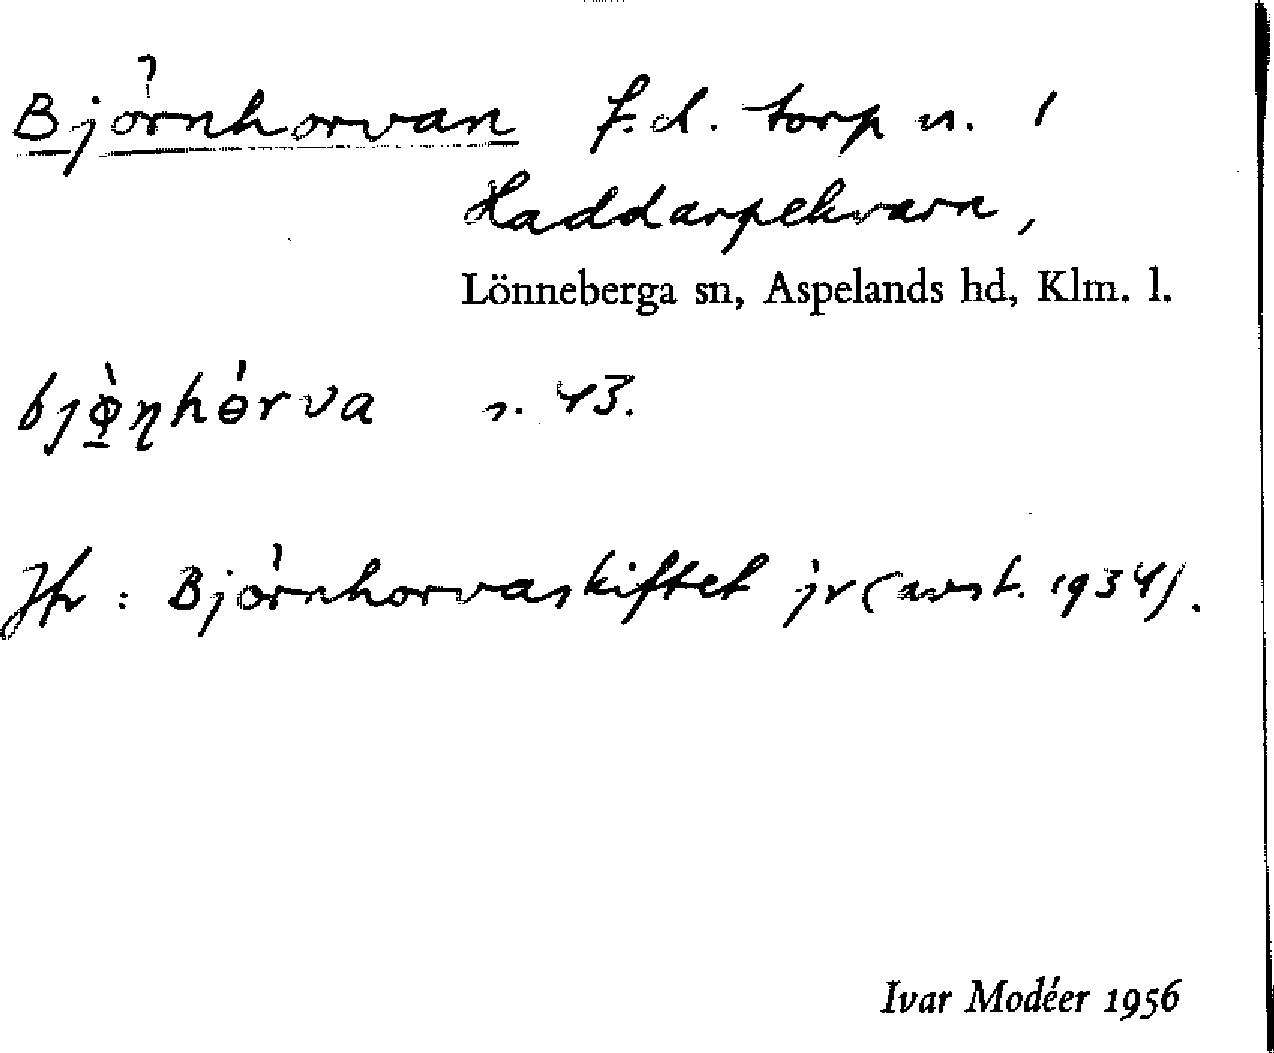 Björnhorvan f.d. torp u. 1
Haddarpekvarn,
Lönneberga sn, Aspelands hd, Klm. l.
s. 43.
Jfr: Björnhorvaskiftet jr (avst. 1934).
Ivar Modéer 1956